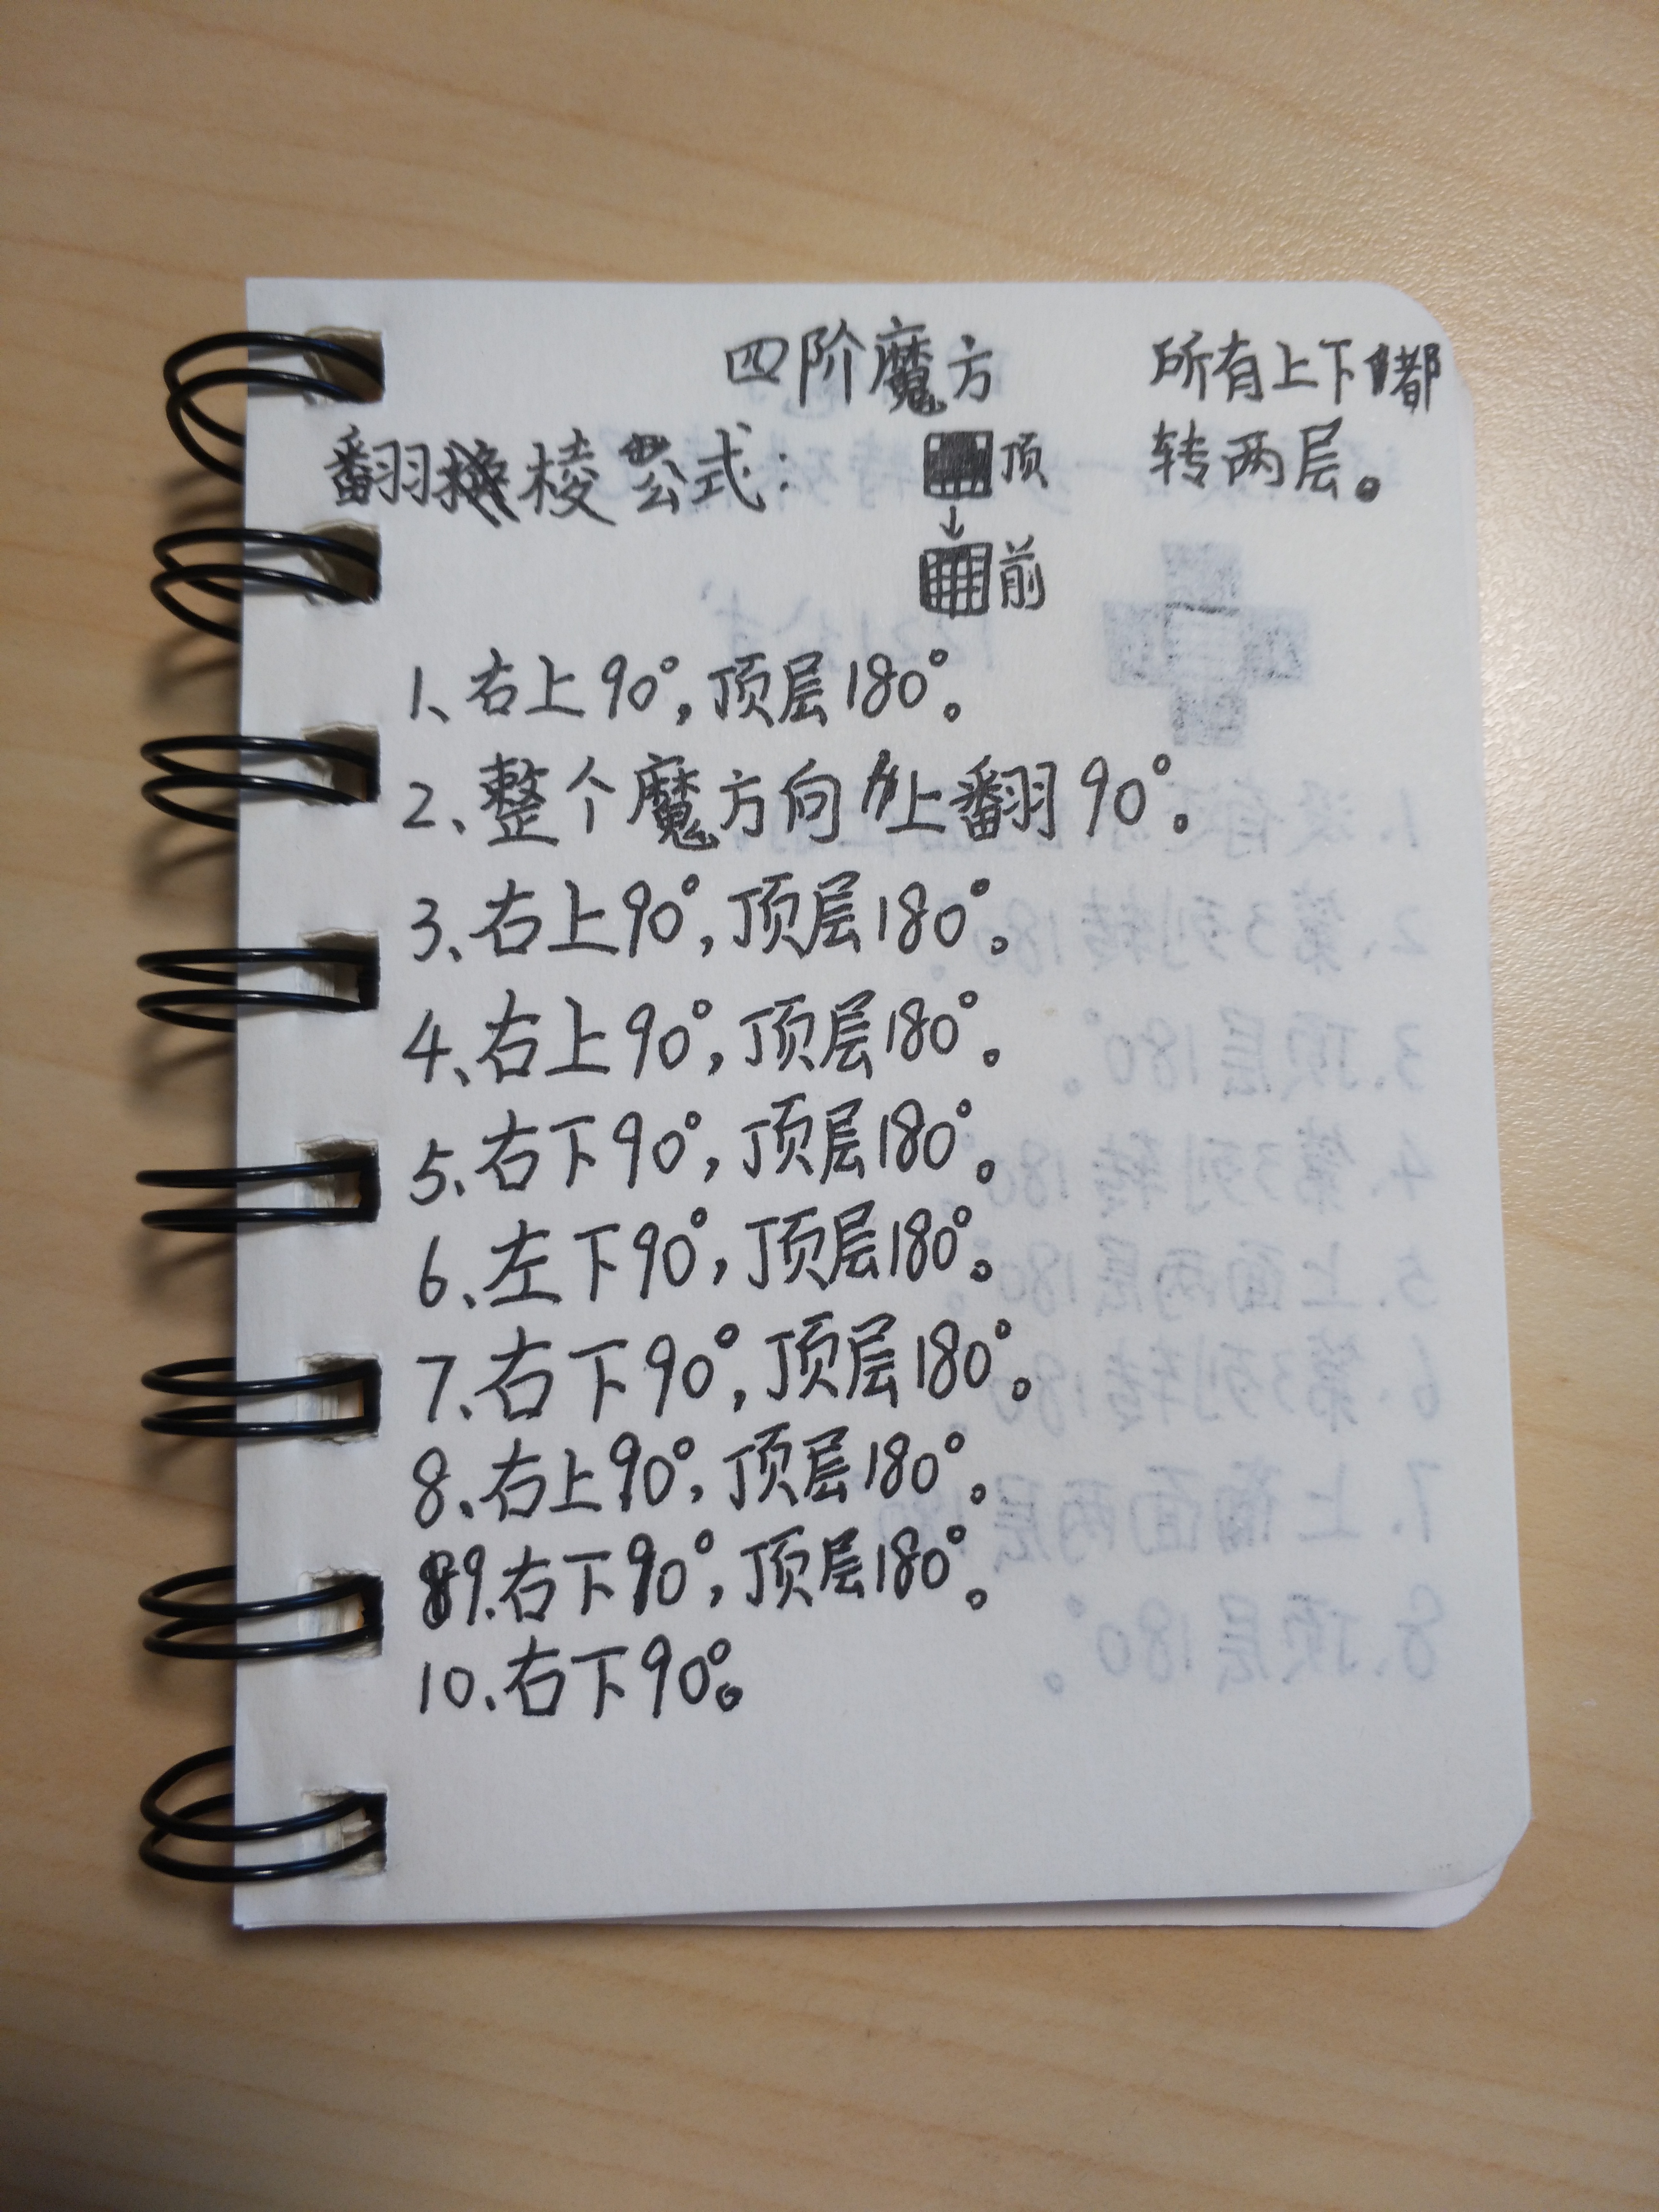 四阶魔方
所有上下都
转两层。
翻棱公式:
顶
前
1、右上90°,顶层180°。
2、整个魔方向上翻90°。
3、右上90°,顶层180°。
4、右上90°,顶层180°。
5、右下90°,顶层180°。
6、左下90°,顶层180°。
7、右下90°,顶层180°。
8、右上90°,顶层180°。
9.右下90°,顶层180°。
10、右下90°。